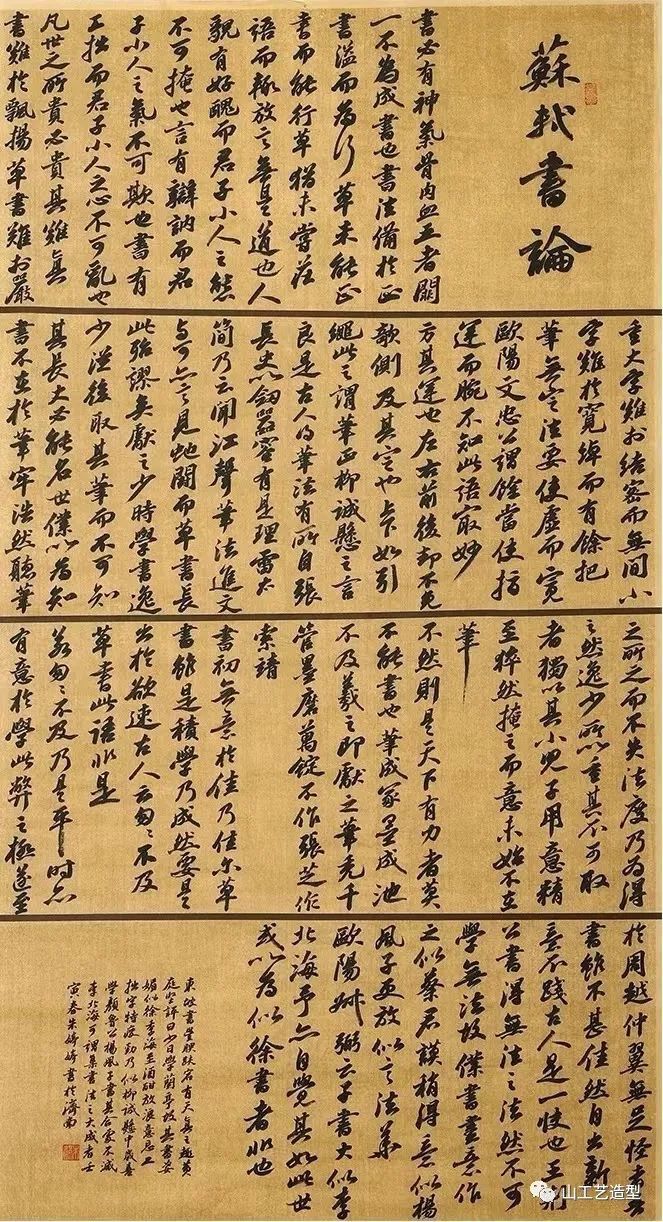 蘇軾書論
書必有神氣骨肉血五者闕
一不為成書也書法備於正
書溢而為行草未能正
書而能行草猶未嘗莊
語而輒放言無是道也人
貌有好醜而君子小人之態
不可掩也言有辯訥而君
子小人之氣不可欺也書有
工拙而君子小人之心不可亂也
凡世之所貴必貴其難真
書難於飄揚草書難於嚴
重大字難於結密而無間小
字難於寬綽而有餘把
筆無定法要使虛而寬
歐陽文忠公謂餘當使指
運而腕不知此語最妙
方其運也左右前後却不免
欹側及其定也上下如引
繩此之謂筆正柳誠懸之言
良是古人得筆法有所自張
長史以劍器容有是理雷太
簡乃云聞江聲筆法進文
與可亦言見蛇鬭而草書長
此殆謬矣獻之少時學書逸
少從後取其筆而不可知
其長大必能名世僕以為知
書不在於筆牢浩然聽筆
之所之而不失法度乃為得
之然逸少所以重其不可取
者獨以其小兒子用意精
至猝然掩之而意未始不在
筆
不然則是天下有力者莫
不能書也筆成冢墨成池
不及羲之即獻之筆禿千
管墨磨萬錠不作張芝作
索靖
書初無意於佳乃佳爾草
書雖是積學乃成然要是
出於欲速古人云匆匆不及
草書此語非是
若匆匆不及乃是平時亦
有意於學此弊之極遂至
於周越仲翼無足怪者吾
書雖不甚佳然自出新
意不踐古人是一快也王荊
公書得無法之法然不可
學無法故僕書盡意作
之似蔡君謨稍得意似楊
風子更放似言法華
歐陽叔弼云子書大似李
北海予亦自覺其如此世
或以為似徐書者非也
東坡書豐腴跌宕有天真之趣黃
庭堅評曰少日學蘭亭故其書姿
媚似徐季海至酒酣放浪意忘工
拙字特瘦勁乃似柳誠懸中歲喜
學顏魯公楊風子書其合處不減
李北海可謂集書法之大成者壬
寅春朱書於濟南
山工艺造型